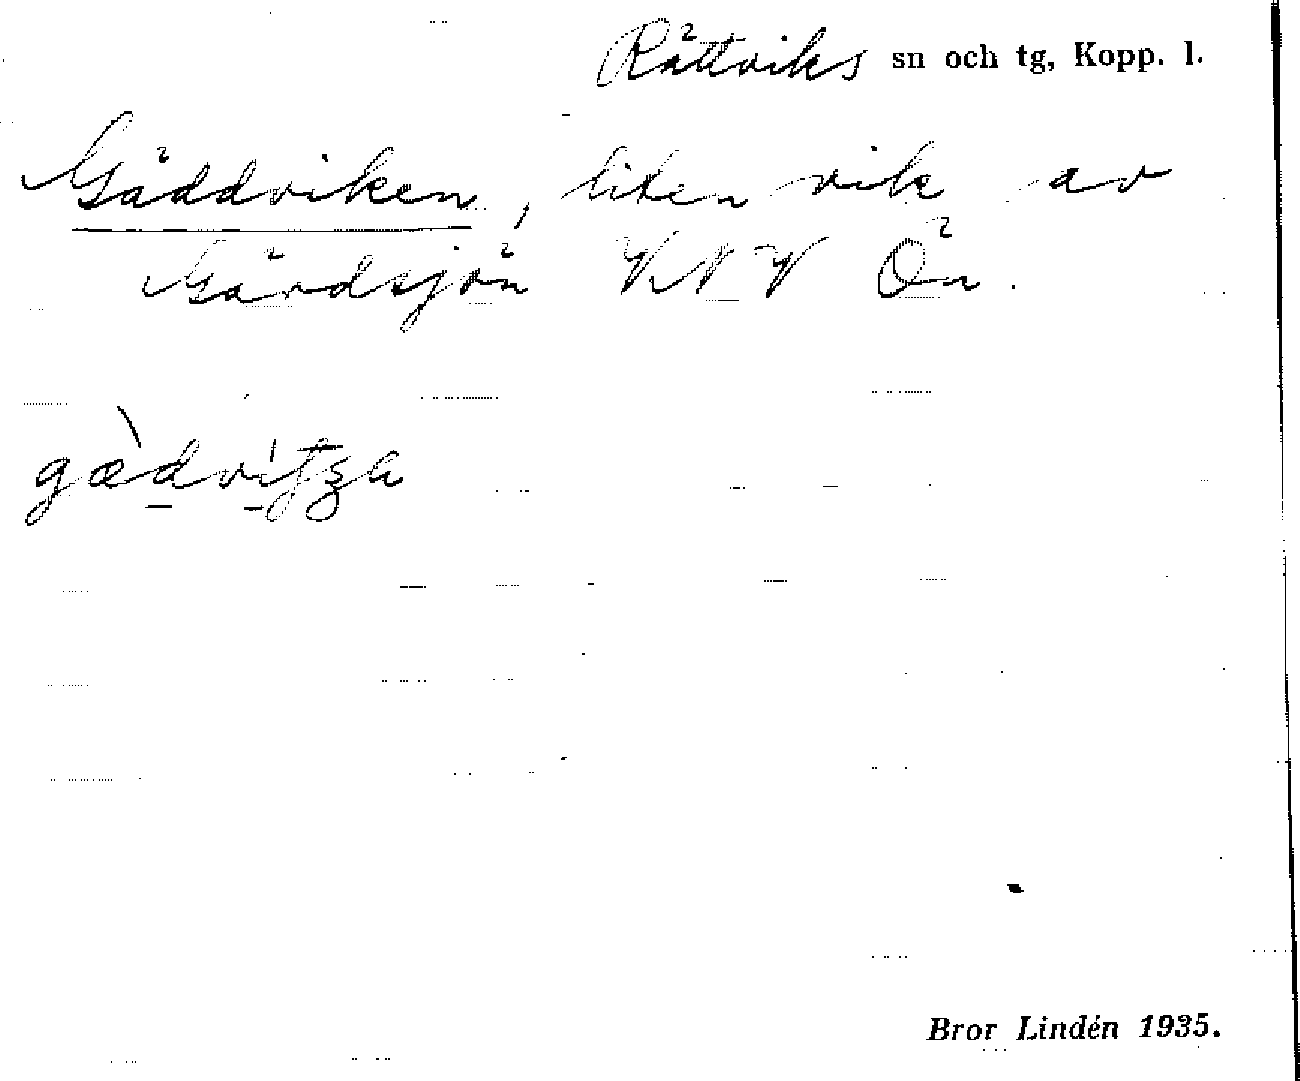 Rättviks sn och tg, Kopp. l.
Gäddviken, liten vik av
Gärdsjön VNV Ön.
gædvitʒa
Bror Lindén 1935.